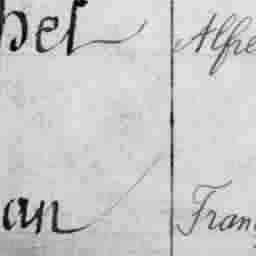 bel Alfre
an Fran